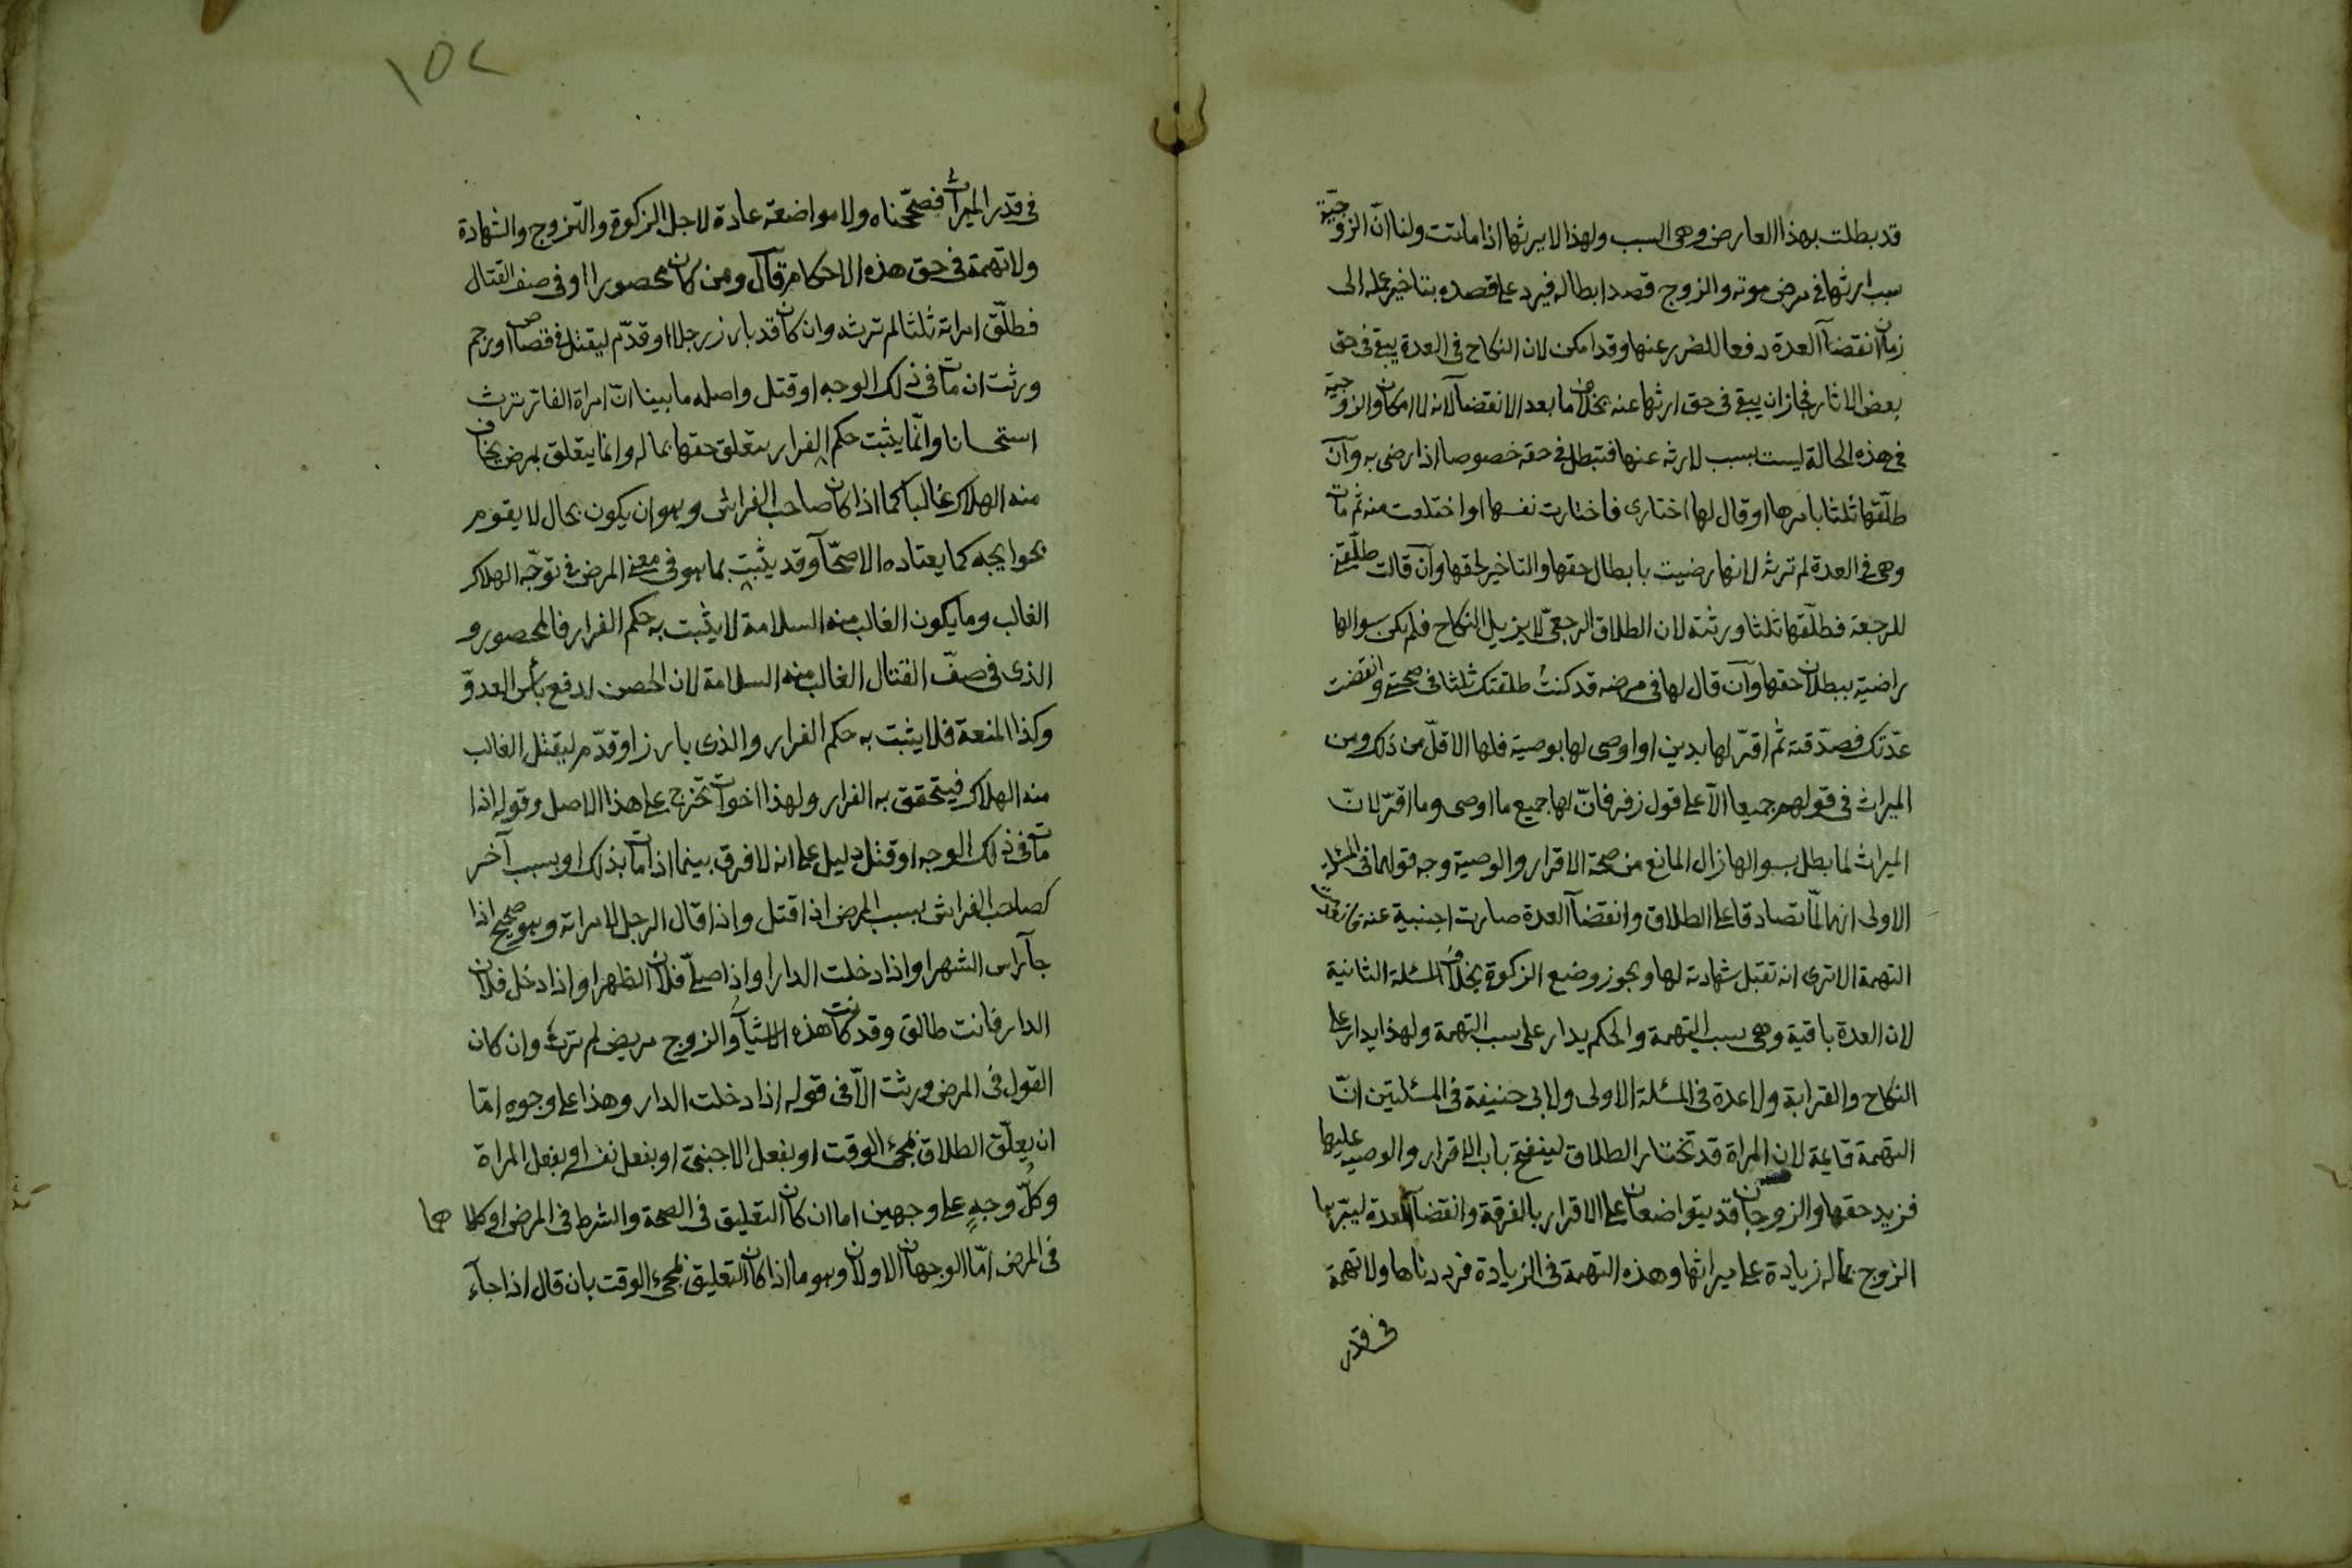 قد بطلت بهذا العارض وهى السبب ولهذا لا يرثها اذا ماتت ولنا انّ الزوجيّة
سبب ارثها فى مرض موته والزوج قصد ابطاله فيرد على قصده بتاخير عمله الى
زمان انقضآ العدة دفعا للضرر عنها وقد امكن لان النكاح فى العدة يبقى فى حق
بعض الاثار فجاز ان يبقى فى حق ارثها عنه بخلاف ما بعد الانقضآ لانه لا امكان والزوجية
فى هذه الحالة ليست بسبب لارثه عنها فتبطل فى حقه خصوصا اذا رضى به وآن
طلّقها ثلثا بامرها او قال لها اختارى فاختارت نفسها او اختلعت منه ثم مات
وهى فى العدة لم ترثه لانها رضيت بابطال حقها والتاخير لحقها وآن قالت طلّقنى
للرجعة فطلّقها ثلثا ورثته لان الطلاق الرجعىّ لا يزيل النكاح فلم تكن بسوالها
راضية ببطلان حقها وآن قال لها فى مرضه قد كنتُ طلقتك ثلثا فى صحتى وانقضت
عدّتك فصدّقته ثم اقرّ لها بدين او اوصى لها بوصية فلها الاقلّ من ذلك ومن
الميراث فى قولهم جميعا الّا على قول زفر فانّ لها جميع ما اوصى وما اقرّ لانّ
الميراث لما بطل بسوالها زال المانع من صحة الاقرار والوصية وجه قولهما فى المسئلة
الاولى انهما لمّا تصادقا على الطلاق وانقضآ العدة صارت اجنبية عنه فانعدمت
التهمة الا ترى انه تقبل شهادته لها ويجوز وضع الزكوة بخلاف المسئلة الثانية
لان العدة باقية وهى سبب التهمة والحكم يدار على سبب التهمة ولهذا يدار على
النكاح والقرابة ولا عدة فى المسئلة الاولى ولابى حنيفة فى المسئلتين انّ
التهمة قايمة لان المراة قد تختار الطلاق لينفتح باب الاقرار والوصية عليها
فزيد حقها والزوجان قد يتواضعان على الاقرار بالفرقة وانقضآ العدة ليبّرها
الزوج بماله زيادة على ميراثها وهذه التهمة فى الزيادة فرددناها ولا تهمة
فى قدر
١٥٢
فى قدر الميراث فصحّحناه ولا مواضعة عادة لاجل الزكوة والتزوج والشهادة
ولا تهمة فى حق هذه الاحكام قآل ومن كان محصورا او فى صف القتال
فطلّق امراته ثلثا لم ترثه وان كان قد بارز رجلا او قدّم ليقتل فى قصاص او رجم
ورثت ان مات فى ذلك الوجه او قتل واصله ما بينا انّ امراة الفار ترث
استحسانا وانّما يثبت حكم الفرار بتعلق حقها بماله وانما يتعلق بمرض يخاف
منه الهلاك غالبا كما اذا كان صاحب الفراش وهو ان يكون بحال لا يقوم
بحوايجه كما يعتاده الاصحّآ وقد يثبت بما هو فى معنى المرض فى توجّه الهلاك
الغالب وما يكون الغالب منه السلامة لا يثبت به حكم الفرار فالمحصور و
الذى فى صفّ القتال الغالب منه السلامة لان الحصن لدفع بأس العدوّ
وكذا المنعة فلا يثبت به حكم الفرار والذى بارز او قدّم ليقتل الغالب
منه الهلاك فيتحقق به الفرار ولهذا اخوات تخرج على هذا الاصل وقوله اذا
مات فى ذلك الوجه او قتل دليل على انه لا فرق بينما اذا مات بذلك او بسبب آخر
كصاحب الفراش بسبب المرض اذا قتل واذا قال الرجل لامراته وهو صحيح اذا
جآ راس الشهر او اذا دخلت الدار او اذا صلّى فلان الظهر او اذا دخل فلان
الدار فانت طالق وقد كانت هذه الاشيآ والزوج مريض لم ترث وان كان
القول فى المرض ورثت الّا فى قوله اذا دخلت الدار وهذا على وجوه امّا
ان يعلّق الطلاق بمجئ الوقت او بفعل الاجنبىّ او بفعل نفسه او بفعل المراة
وكلّ وجهٍ على وجهين اما ان كان التعليق فى الصحة والشرط فى المرض او كلاهما
فى المرض امّا الوجهان الاولان وهو ما اذا كان التعليق بمجئ الوقت بان قال اذا جآء